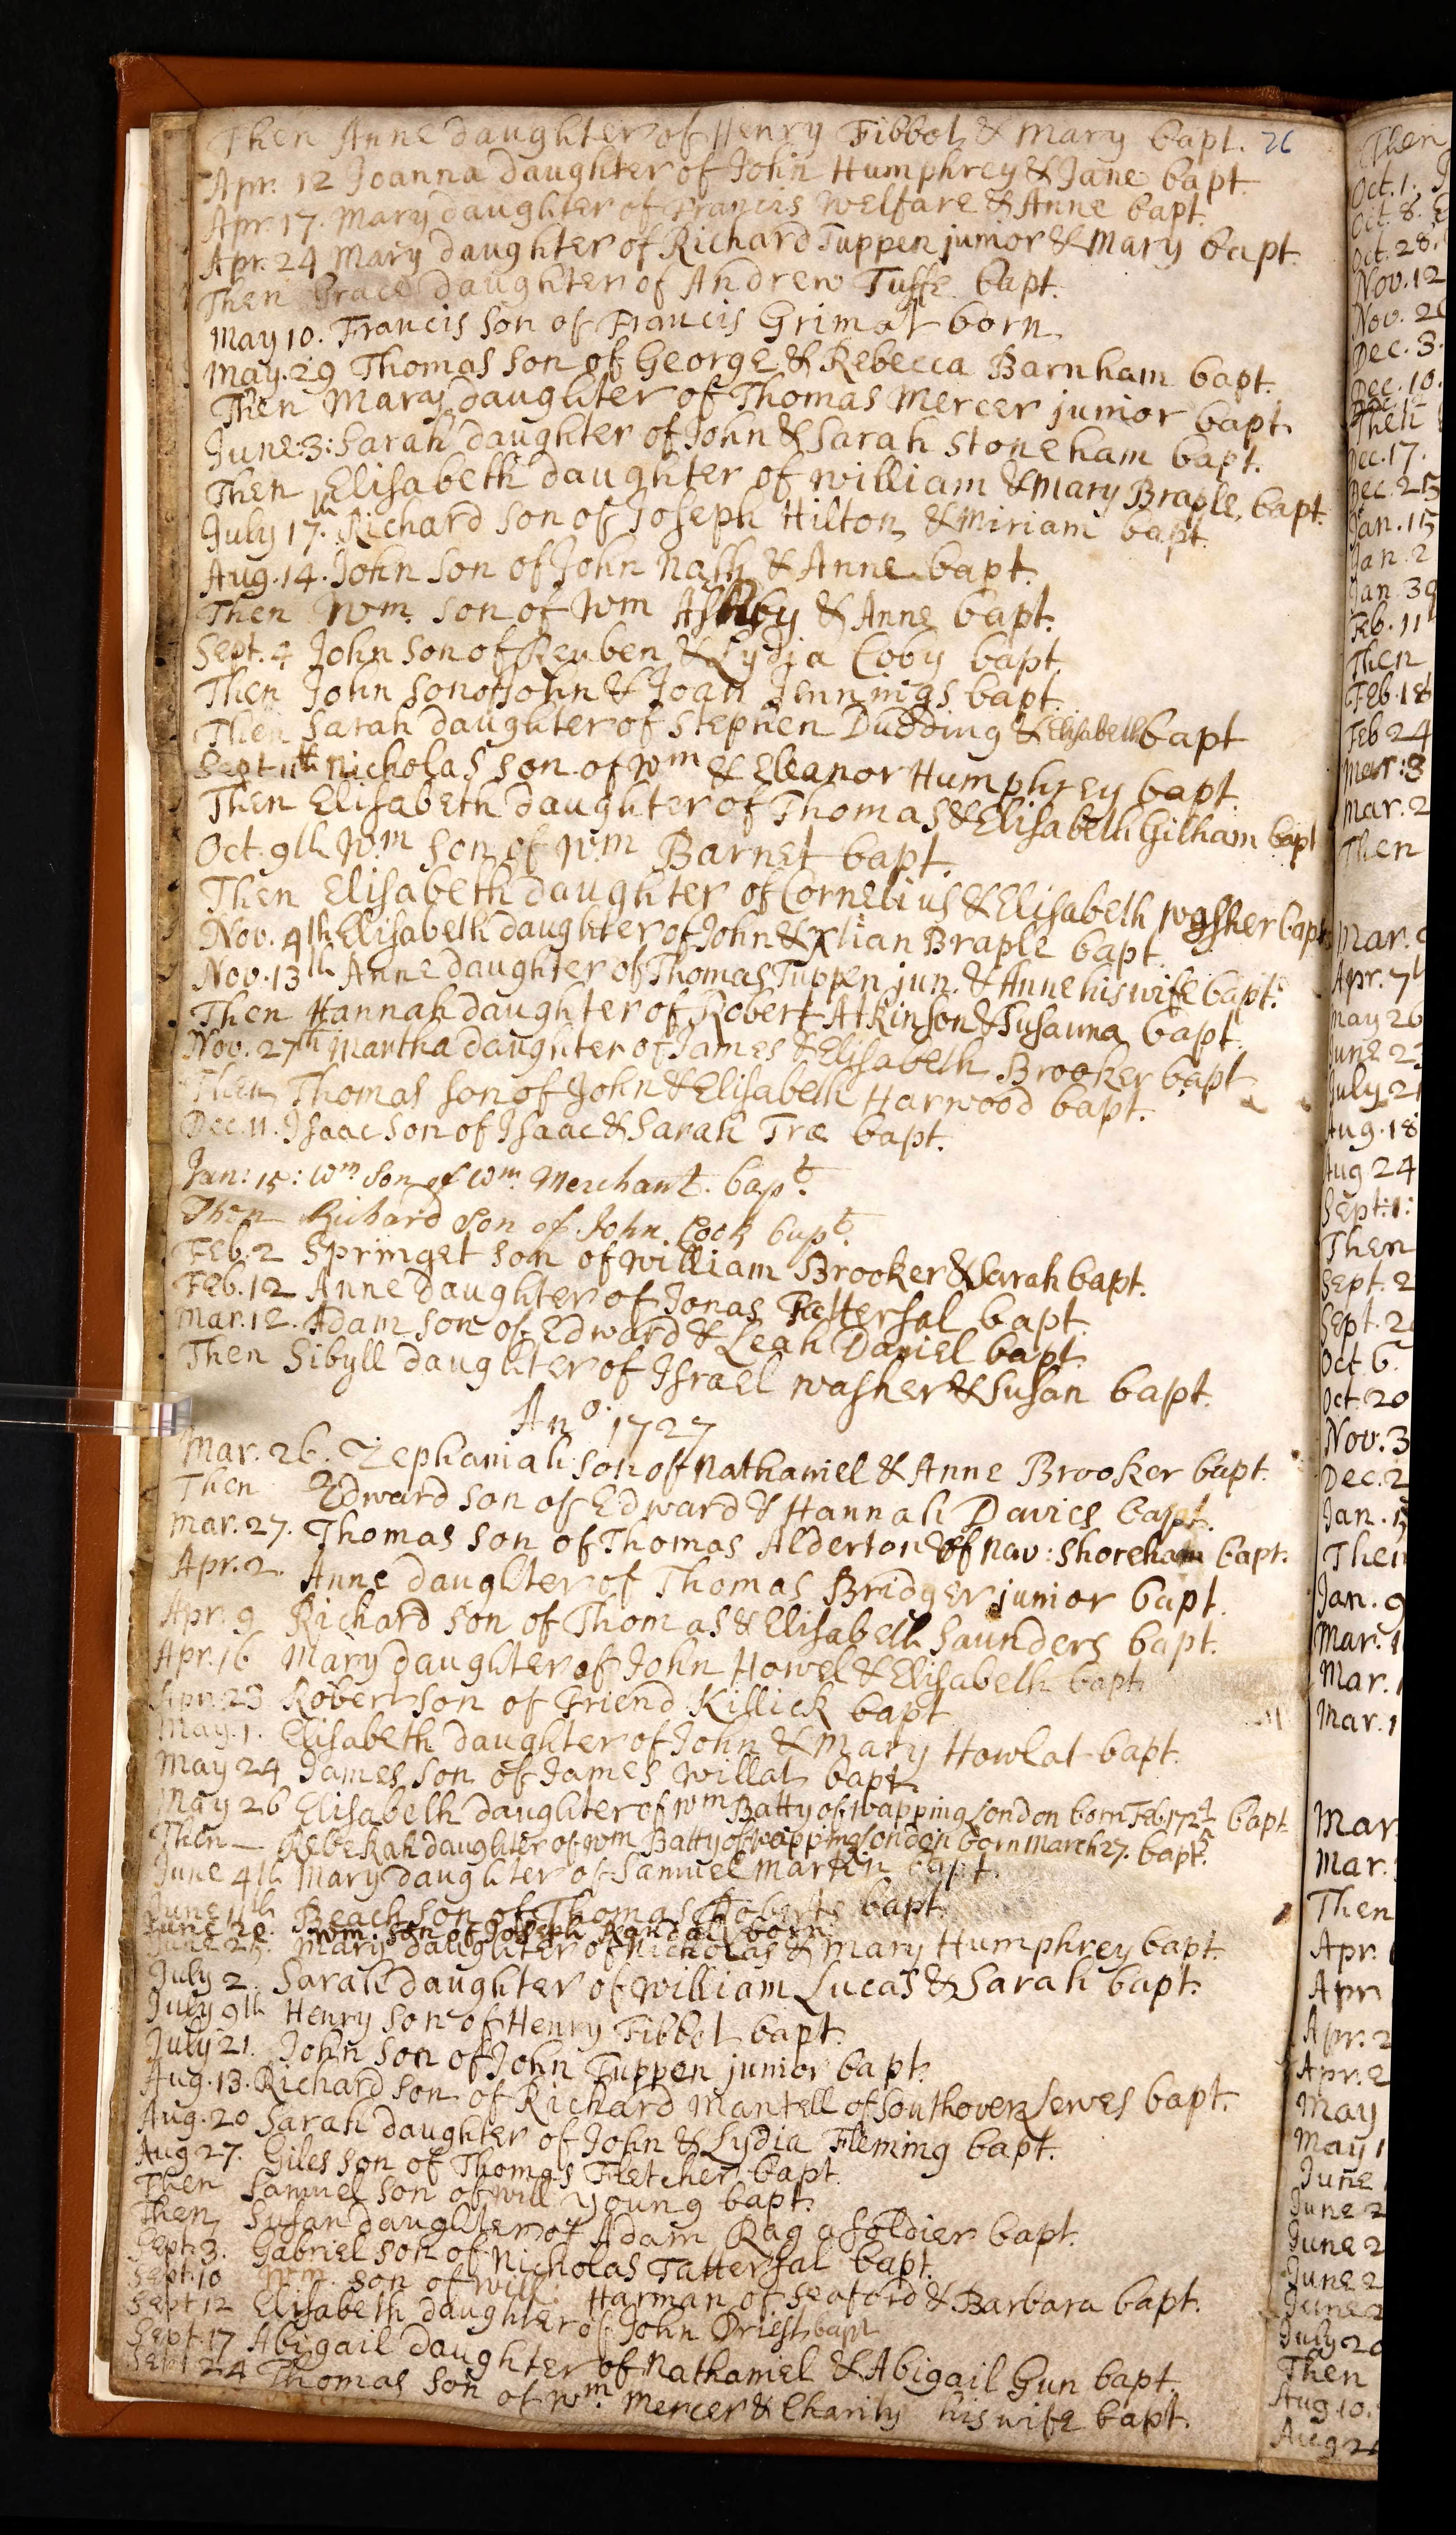 Then Anne daughter of Henry Fibbot & Mary bapt. 26
Apr. 12 Joanna daughter of John Humphrey & Jane bapt.
Apr. 17. Mary daughter of Francis Welfare & Anne bapt.
Apr. 24 Mary daughter of Richard Tuppen junior & Mary bapt.
Then Grace daughter of Andrew Tuffe bapt.
May 10. Francis son of Francis Grimat born
May. 29 Thomas son of George & Rebecca Barnham bapt.
Then Mary daughter of Thomas Mercer junior bapt.
June: 3: Sarah daughter of John & Sarah Stoneham bapt.
Then Elisabeth daughter of William & Mary Braple. bapt.
July 17.th Richard son of Joseph Hilton & Miriam bapt.
Aug. 14. John son of John Nash & Anne bapt.
Then Wm. son of Wm Ashby & Anne bapt.
Sept. 4 John son of Reuben & Lydia Coby bapt.
Then John son of John & Joan Jennings bapt.
Then Sarah daughter of Stephen Dudding & Elisabeth bapt
Sept 11th Nicholas son of Wm & Eleanor Humphrey bapt.
Then Elisabeth daughter of Thomas & Elisabeth Gilham bapt
Oct. 9th Wm son of Wm Barnet bapt.
Then Elisabeth daughter of Cornelius & Elisabeth Washer bapt
Nov. 4th Elisabeth daughter of John & Xtian Braple bapt.
Nov. 13th Anne daughter of Thomas Tuppen jun. & Anne his wife bapt.
Then Hannah daughter of Robert Atkinson & Susanna bapt.
Nov. 27th Martha daughter of James & Elisabeth Brooker bapt
Then Thomas son of John & Elisabeth Harwood bapt.
Dec. 11. Isaac son of Isaac & Sarah Tree bapt.
Jan: 15: Wm son of Wm. Merchant. bapt.
Then Richard son of John Cook bapt.
Feb. 2 Springet son of William Brooker & Sarah bapt.
Feb. 12 Anne daughter of Jonas Tattersal bapt.
Mar. 12. Adam son of Edward & Leah Daniel bapt.
Then Sibyll daughter of Israel Washer & Susan bapt.
Ano. 1727
Mar. 26. Zephaniah son of Nathaniel & Anne Brooker bapt.
Then Edward son of Edward & Hannah Davies bapt.
Mar. 27. Thomas son of Thomas Alderton of nov: Shoreham bapt.
Apr. 2. Anne daughter of Thomas Bridger junior bapt.
Apr. 9 Richard son of Thomas & Elisabeth Saunders bapt.
Apr. 16 Mary daughter of John Howel & Elisabeth bapt.
Apr. 23 Robert son of Friend Killick bapt
May. 1. Elisabeth daughter of John & Mary Howlat bapt.
May 24 James son of James Willat bapt.
May 26 Elisabeth daughter of Wm Batty of Wapping London born Feb. bapt.
Then Rebekah daughter of Wm Batty of Wapping London born March 27. bapt.
June 4th Mary daughter of Samuel Martin bapt.
June 11th Beach son of Thomas Roberts bapt.
June 20. Wm. son of Joseph Randal born
June 25. Mary daughter of Nicholas & Mary Humphrey bapt.
July 2. Sarah daughter of William Lucas & Sarah bapt.
July 9th Henry son of Henry Fibbot bapt.
July 21. John son of John Tuppen junior bapt.
Aug. 13. Richard son of Richard Mantell of Southover Lewes bapt.
Aug. 20 Sarah daughter of John & Lydia Fleming bapt.
Aug 27. Giles son of Thomas Fletcher bapt.
Then Samuel son of Will Young bapt.
Then Susan daughter of Adam Rag a soldier bapt.
Sept. 3. Gabriel son of Nicholas Tattersal bapt.
Sept. 10 Wm. son of Will: Harman of Seaford & Barbara bapt.
Sept 12 Elisabeth daughter of John Driest bapt
Sept. 17 Abigail daughter of Nathaniel & Abigail Gun bapt.
Sept 24 Thomas son of Wm. Mercer & Charity his wife bapt.
Then
Oct. 1.
Oct. 8.
Oct. 28.
Nov. 12
Nov. 2
Dec. 3.
Dec. 10.
Then
Dec. 17.
Dec. 25
Jan. 15
Jan. 2
Jan 30
Feb. 11
Then
Feb. 18
Feb 24
Mar: 3
Mar. 2
Then
Mar.
Apr. 7
May 26
June 23
July 21
Aug. 18
Aug 24
Sept: 1:
Then
Sept. 2
Sept. 2
Oct 6.
Oct. 20
Nov. 3
Dec. 2
Jan. 15
Then
Jan. 9
Mar. 1
Mar. 1
Mar. 1
Mar
Mar.
Then
Apr.
Apr
Apr. 2
Apr. 2
May
May 1
June
June 2
June 2
June 2
June 2
July 20
Then
Aug 10.
Aug 2